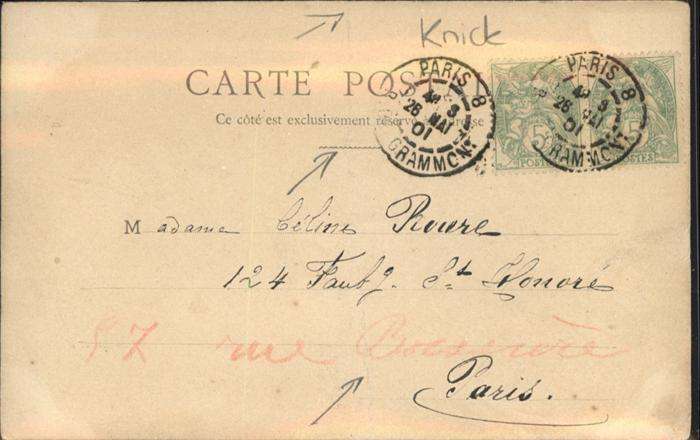 Knick
CARTE POS
Ce côté est exclusivement réservé esse
PARIS 8
4E 3
26 MAI
01
GRAMMONT
PARIS 8
4E 3
26 MAI
01
GRAMMONT
5
POSTES
Madame Céline Roure
124 Faubg. St. Honoré
57 rue
Paris.